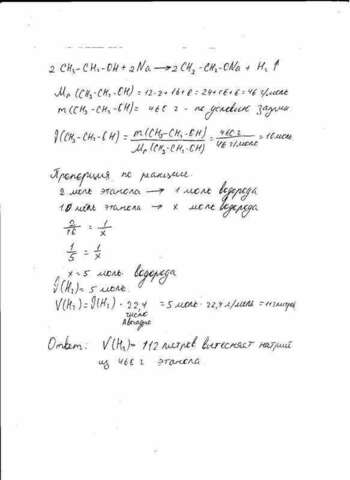 2 CH₃-CH₂-OH + 2Na → 2CH₃-CH₂-ONa + H₂ ↑
Mr (CH₃-CH₂-OH) = 12·2+16+6 = 24+16+6 = 46 г/моль
m(CH₃-CH₂-OH) = 460 г - по условию задачи
ν(CH₃-CH₂-OH) = m(CH₃-CH₂-OH) / Mr(CH₃-CH₂-OH) = 460 г / 46 г/моль = 10 моль
Пропорция по реакции:
2 моль этанола → 1 моль водорода
10 моль этанола → x моль водорода
2/10 = 1/x
1/5 = 1/x
x = 5 моль водорода
ν(H₂) = 5 моль
V(H₂) = ν(H₂) · 22,4 = 5 моль · 22,4 л/моль = 112 литров
число
Авогадро
Ответ: V(H₂) = 112 литров вытесняет натрий
из 460 г этанола